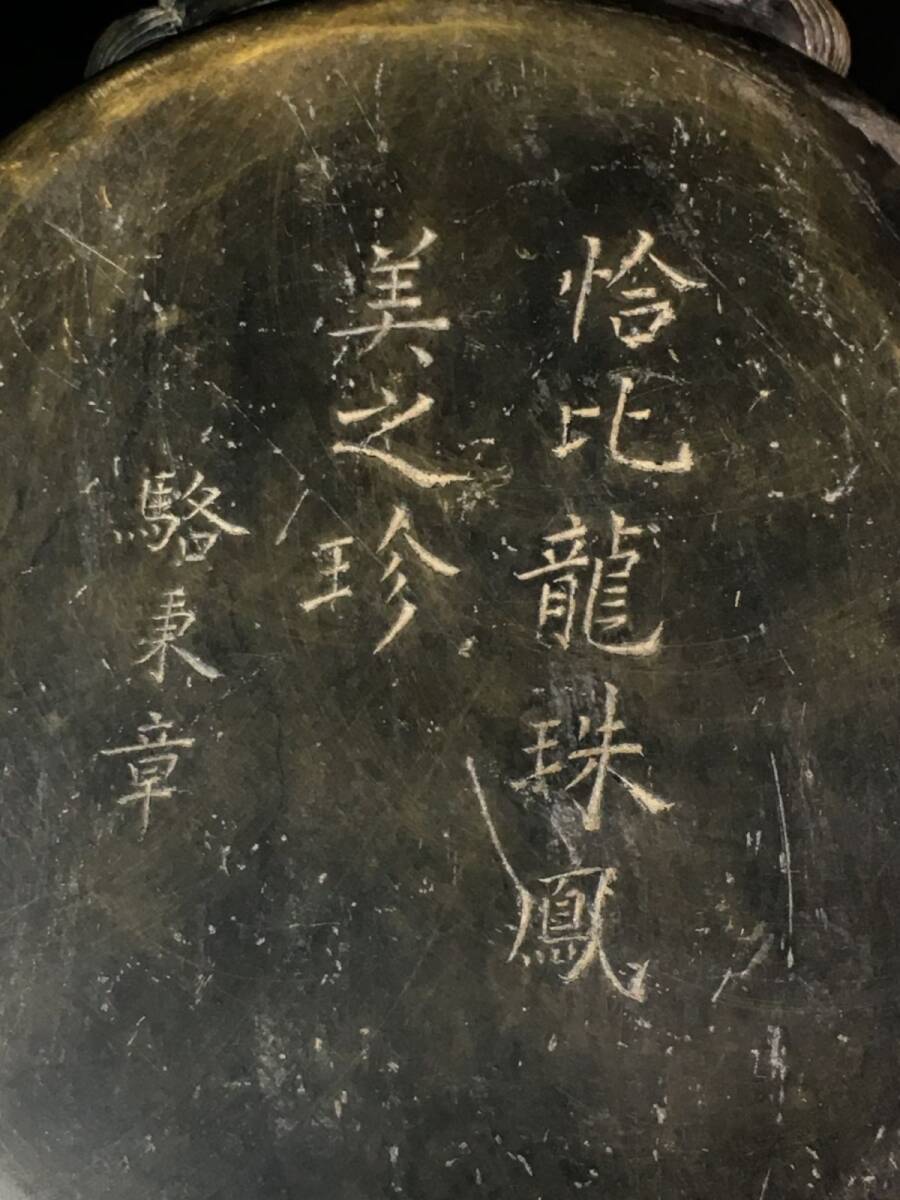 恰比龍珠鳳
美之珍
駱秉章